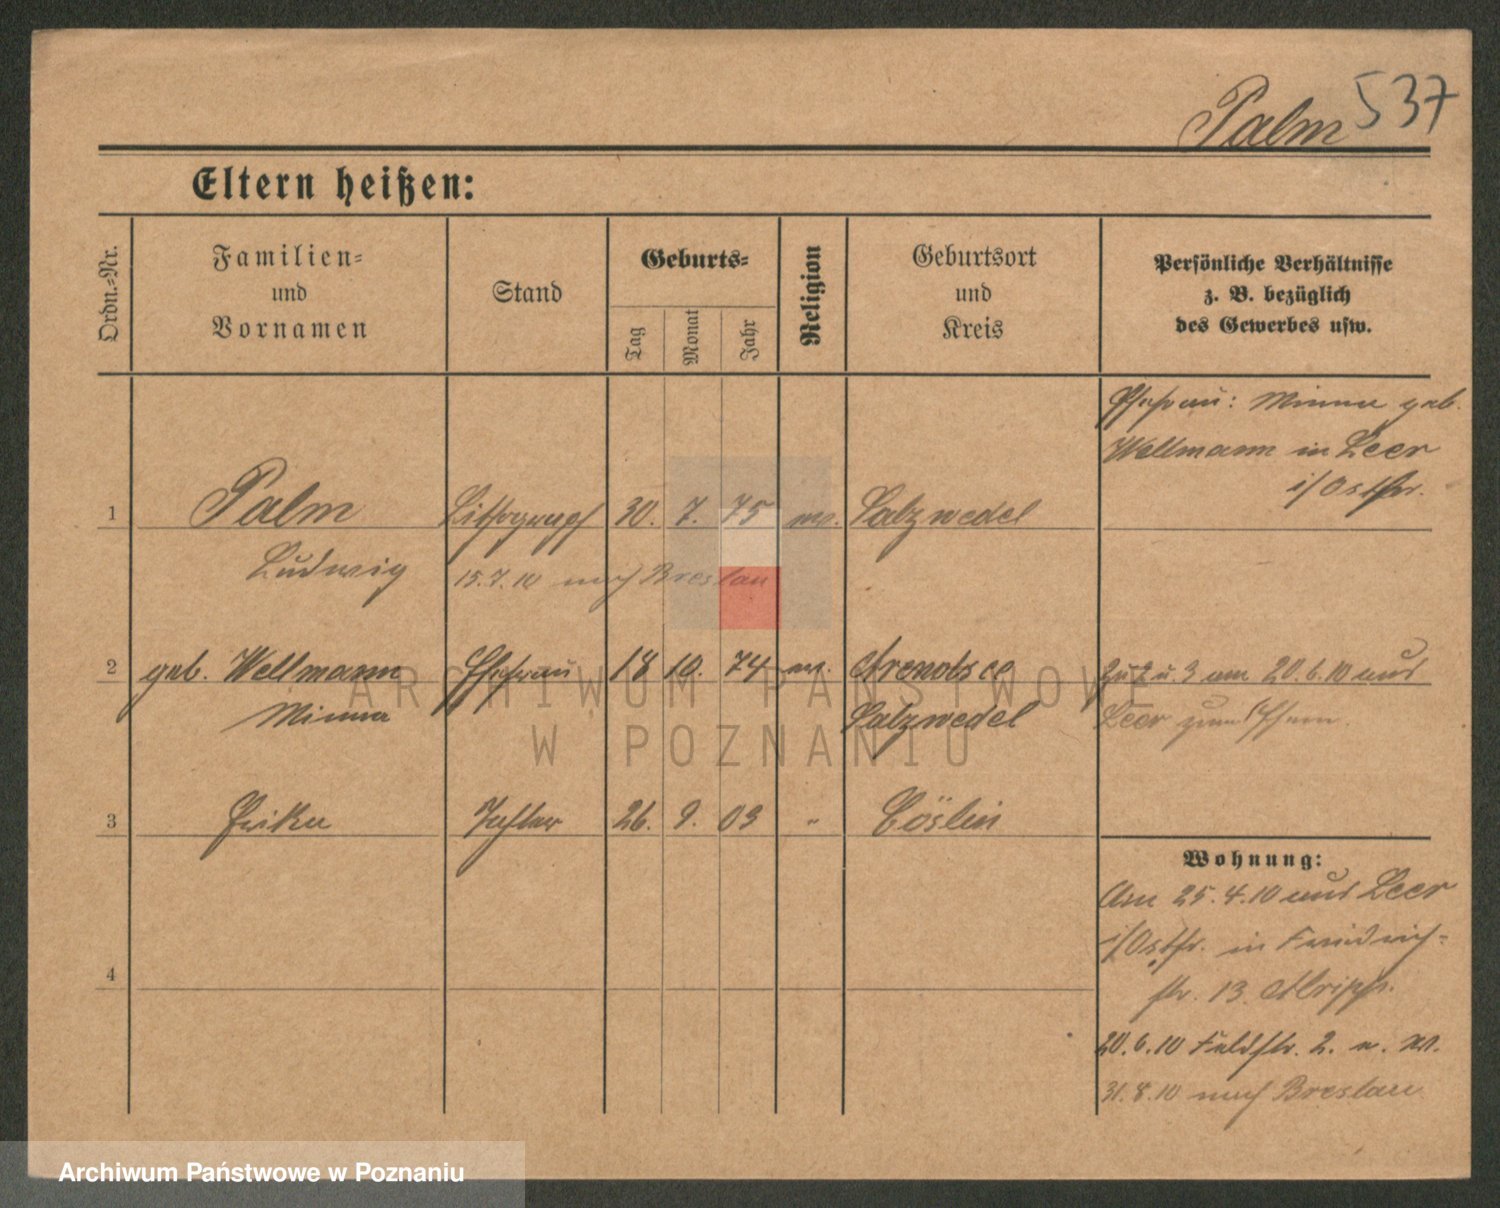 Palm 537
Eltern heißen:
Ordn.-Nr.
Familien-
und
Vornamen
Stand
Geburts-
Tag
Monat
Jahr
Religion
Geburtsort
und
Kreis
Persönliche Verhältnisse
z. B. bezüglich
des Gewerbes usw.
Ehefrau: Minna geb.
Wellmann in Leer
i/Ostfr.
1 Palm Lithograph 30. 7. 75 Salzwedel
Ludwig 15.7.10 nach Breslau
2 geb. Wellmann Ehefrau 18 10. 74 Arendsee
Minna Salzwedel
Zu 2 u. 3 am 20.6.10 aus
Leer zum Ehem.
3 Erika Tochter 26. 9. 03 " Cöslin
Wohnung:
Am 25.4.10 aus Leer
i/Ostfr. in Friedrich-
str. 13
20.6.10 Feldstr. 2.
31.8.10 nach Breslau
4
ARCHIWUM PAŃSTWOWE
W POZNANIU
Archiwum Państwowe w Poznaniu